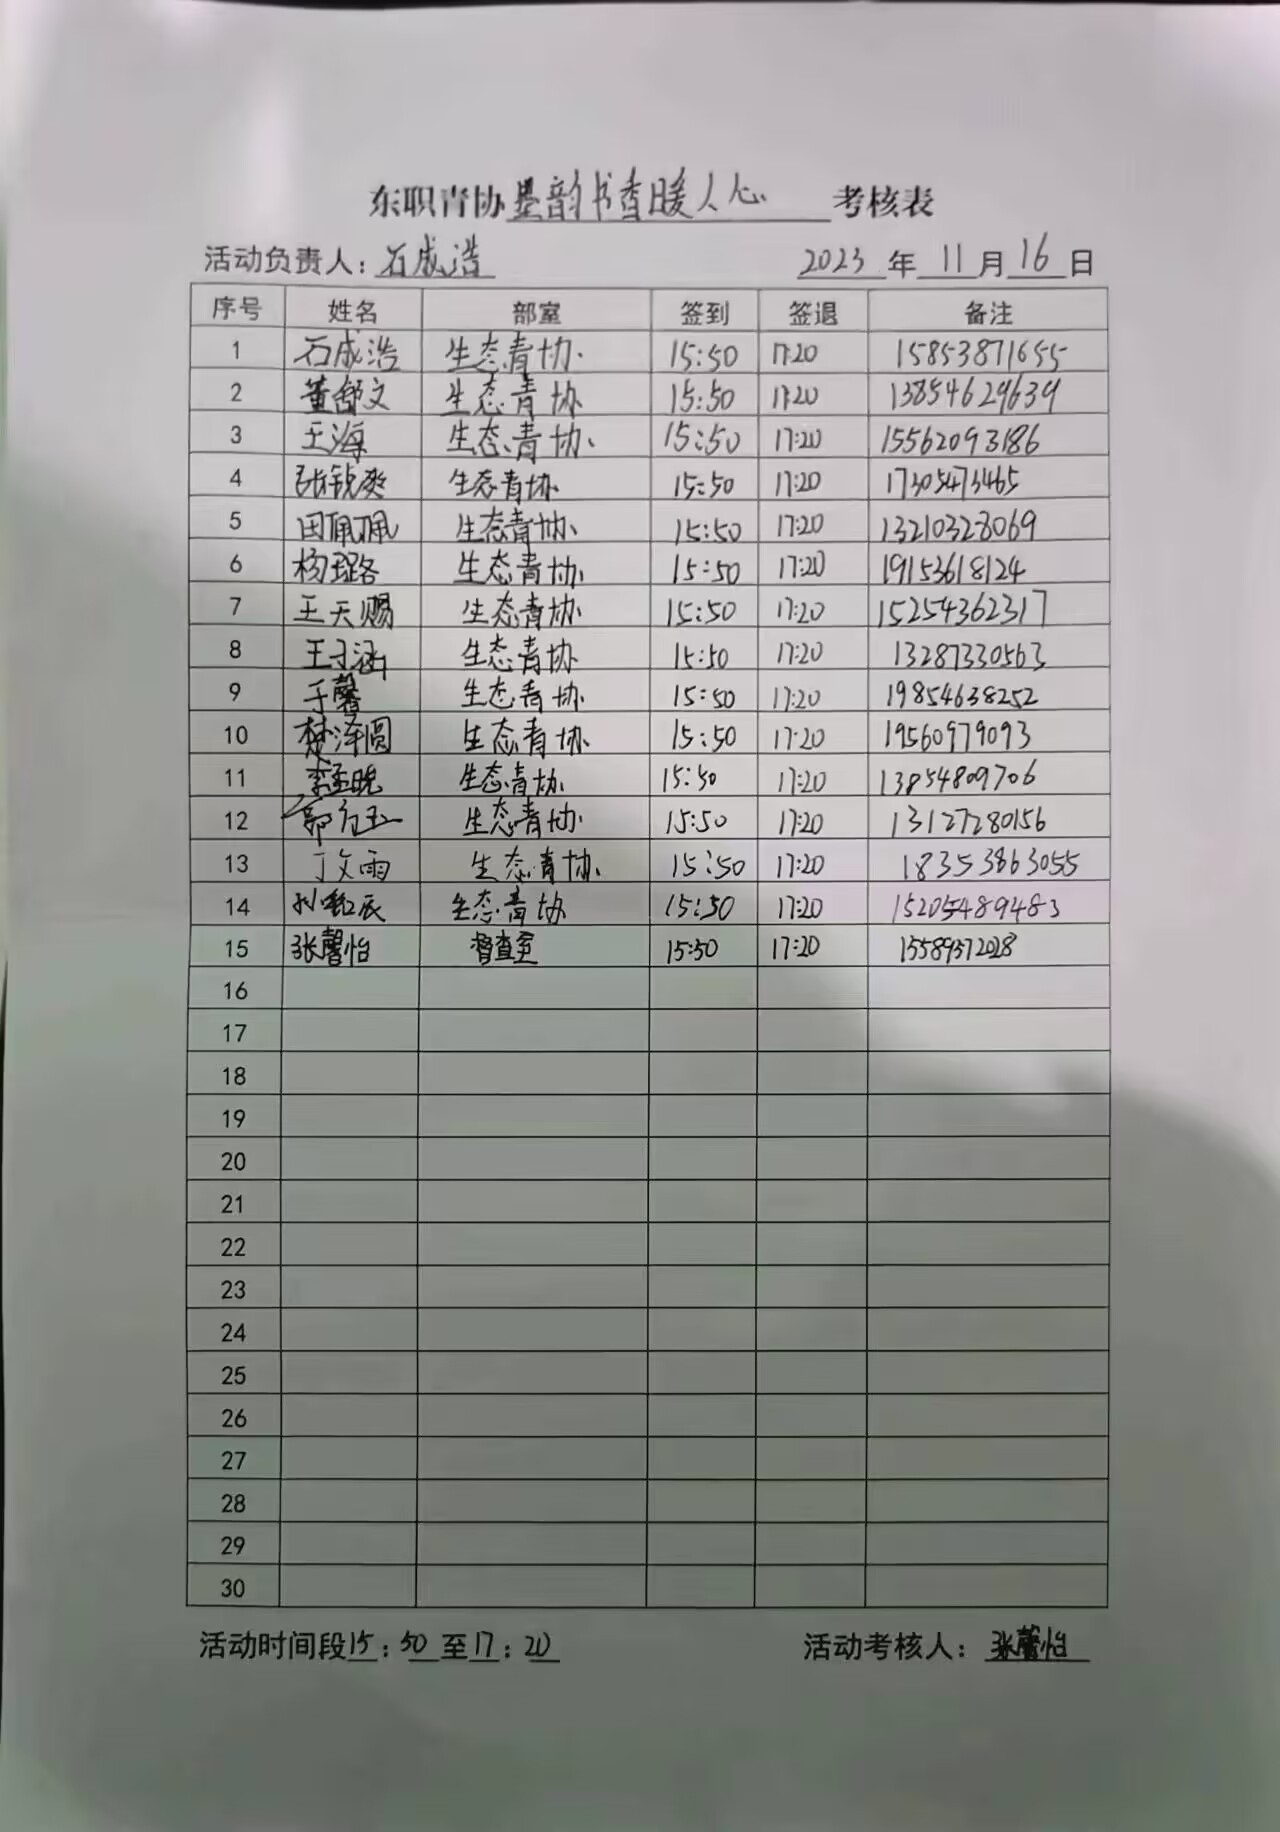 东职青协墨韵书香暖人心考核表
活动负责人：石成浩 2023年11月16日
序号 姓名 部室 签到 签退 备注
1 石成浩 生态青协 15:50 17:20 15853871655
2 董舒文 生态青协 15:50 17:20 13854629639
3 王海 生态青协 15:50 17:20 15562093186
4 张锐爽 生态青协 15:50 17:20 17305473465
5 田佩佩 生态青协 15:50 17:20 13210328069
6 杨璐 生态青协 15:50 17:20 19153618124
7 王天赐 生态青协 15:50 17:20 15254362317
8 王子涵 生态青协 15:50 17:20 13287330563
9 于馨 生态青协 15:50 17:20 19854638252
10 楚泽圆 生态青协 15:50 17:20 19560979093
11 生态青协 15:50 17:20 13854809706
12 生态青协 15:50 17:20 13127280156
13 丁文雨 生态青协 15:50 17:20 18353863055
14 生态青协 15:50 17:20 15205489483
15 张馨怡 督查室 15:50 17:20 15589372028
16
17
18
19
20
21
22
23
24
25
26
27
28
29
30
活动时间段15：50至17：20 活动考核人：张馨怡